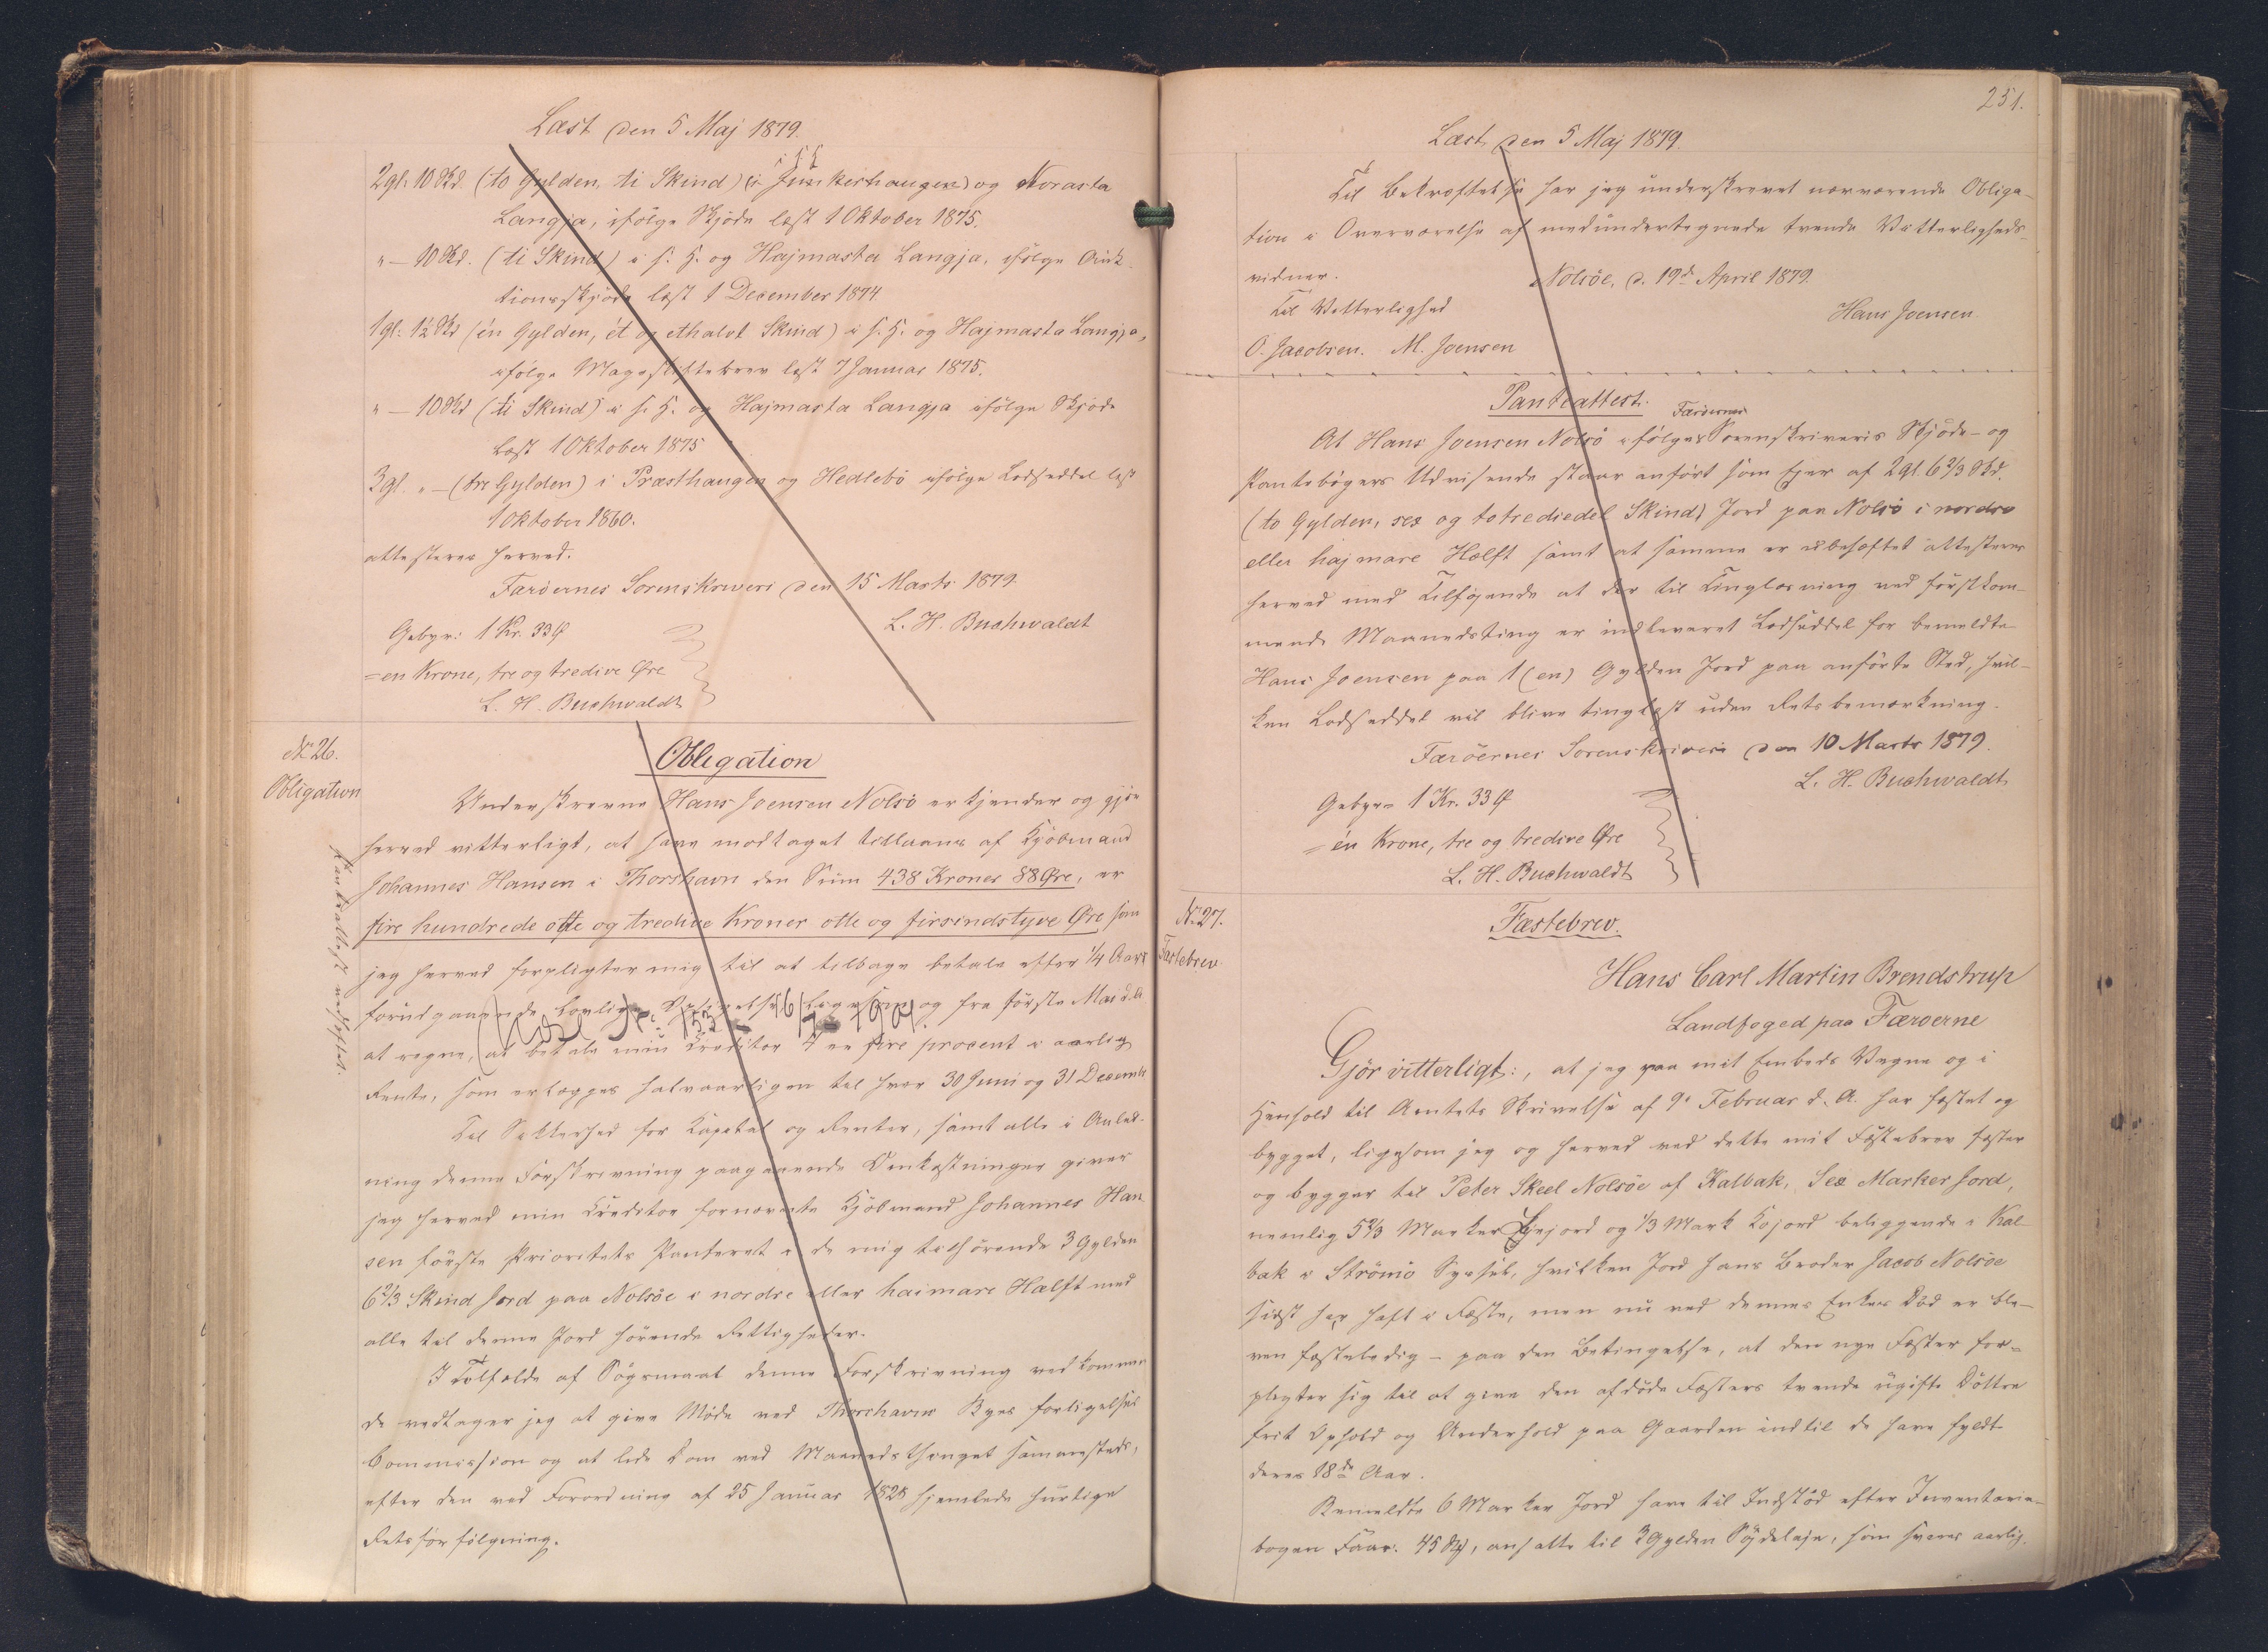 Læst den 5 Maj 1879.
2gl. 10 Skd. (to Gylden, ti Skind) (i Junkerhaugen) og Norasta
Langja, ifölge Skjöde læst 1 Oktober 1875.
" — 10 Skd. (ti Skind) i s. H. og Hajmasta Langja, ifölge Auk-
tionsskjöde læst 1 December 1874
1gl. 1½ Skd (én Gylden, ét og ethalvt Skind) i s. H. og Hajmasta Langja,
ifölge Mageskiftebrev læst 7 Januar 1875.
" — 10 Skd (ti Skind) i s. H. og Hajmasta Langja ifölge Skjöde
læst 1 Oktober 1875
3gl. " — (tre Gylden) i Præsthaugen og Hedlebö ifölge Lodseddel læst
1 Oktober 1860.
attesteres herved.
Færöernes Sorenskriveri den 15 Marts 1879.
L. H. Buchwaldt
Gebyr: 1 Kr. 33 Ø
= en Krone, tre og tredive Øre
L. H. Buchwaldt
No 26.
Obligation
Obligation
Underskrevne Hans Joensen Nolsö erkjender og gjör
herved vitterligt, at have modtaget tillaans af Kjöbmand
Johannes Hansen i Thorshavn den Sum 438 Kroner 88 Øre, er
fire hundrede otte og tredive Kroner otte og firsindstyve Øre, som
jeg herved forpligter mig til at tilbage betale efter ¼ Aars
forudgaaende lovlig Opsigelse, ligesom og fra förste Mai d. A.
at regne, at betale min Creditor 4 er fire procent i aarlig
Rente, som erlægges halvaarligen til hver 30 Juni og 31 Decemb
Til Sikkerhed for Kapital og Renter, samt alle i Anled-
ning denne Forskrivning paagaaende Omkostninger giver
jeg herved min Creditor fornævnte Kjöbmand Johannes Han
sen förste Prioritets Panteret i de mig tilhörende 3 Gylden
6⅔ Skind Jord paa Nolsöe i nordre eller haimare Hælft med
alle til denne Jord hörende Rettigheder.
I Tilfælde af Sögsmaal denne Forskrivning vedkommen
de vedtager jeg at give Möde ved Thorshavns Byes Forligelses
Commission og at lide Dom ved Maanedsthinget sammesteds,
efter den ved Forordning af 25 Januar 1828 hjemlede hurtige
Retsforfölgning.
Panteattest vedheftet.
251.
Læst den 5 Maj 1879.
Til Bekræftelse har jeg underskrevet nærværende Obliga-
tion i Overværelse af medundertegnede tvende Vitterligheds-
vidner.
Nolsöe, d. 19de April 1879.
Til Vitterlighed
Hans Joensen.
O. Jacobsen. M. Joensen
Panteattest.
Færöernes
At Hans Joensen Nolsö ifölge Sorenskriveris Skjöde- og
Pantebögers Udvisende staar anfört som Ejer af 2gl. 6⅔ Skd.
(to Gylden, sex og totrediedel Skind) Jord paa Nolsö i nordre
eller hajmare Hælft samt at samme er ubehæftet attesteres
herved med Tilföjende at der til Tinglæsning ved förstkom-
mende Maanedsting er indleveret Lodseddel for bemeldte
Hans Joensen paa 1 (en) Gylden Jord paa anförte Sted, hvil-
ken Lodseddel vil blive tinglæst uden Retsbemærkning.
Færöernes Sorenskriveri den 10 Marts 1879.
L. H. Buchwaldt
Gebyr = 1 Kr. 33 Ø
= én Krone, tre og tredive Øre
L. H. Buchwaldt
No 27.
Fæstebrev.
Fæstebrev.
Hans Carl Martin Brendstrup
Landfoged paa Færöerne
Gjör vitterligt:, at jeg paa mit Embeds Vegne og i
Henhold til Amtets Skrivelse af 9de Februar d. A. har fæstet og
bygget, ligesom jeg og herved ved dette mit Fæstebrev fæster
og bygger til Peter Skeel Nolsöe af Kalbak, Sex Marker Jord,
nemlig 5⅔ Marker Lejejord og ⅓ Mark Kojord beliggende i Kal-
bak i Strömö Syssel, hvilken Jord hans Broder Jacob Nolsöe
sidst har haft i Fæste, men nu ved dennes Enkes Död er ble-
ven fæsteledig — paa den Betingelse, at den nye Fæster for-
pligter sig til at give den afdöde Fæsters tvende ugifte Döttre
frit Ophold og Underhold paa Gaarden indtil de have fyldt
deres 18de Aar.
Bemeldte 6 Marker Jord have til Indstöd efter Inventarie-
bogen Faar: 45 Stk, ansatte til 3 Gylden Söjdeleje, som svares aarlig